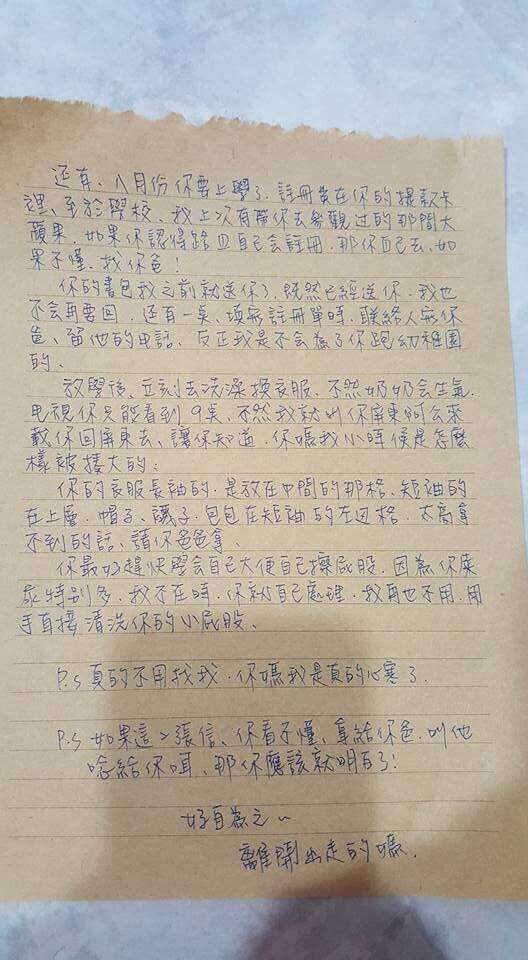 还有、八月份你要上學了、註冊費在你的提款卡
裡、至於學校、我上次有帶你去參觀过的那間大
蘋果、如果你認得路且自己会註冊、那你自己去、如
果不懂、找你爸!
你的書包我之前就送你了、既然已經送你、我也
不会再要回、还有一点、填寫註冊單時、联絡人寫你
爸、留他的电話、反正我是不会為了你跑幼稚園
的、
放學後、立刻去洗澡換衣服、不然奶奶会生氣、
电視你只能看到9点、不然我就叫你屏東阿公來
載你回屏東去、讓你知道、你媽我小時候是怎麼
樣被揍大的;
你的衣服長袖的、是放在中間的那格、短袖的
在上層、帽子、襪子、包包在短袖的左边格、太高拿
不到的話、請你爸爸拿、
你最好趕快學会自己大便自己擦屁股、因為你屎
尿特别多、我不在時、你就自己處理、我再也不用、用
手直接清洗你的小屁股、
P.S 真的不用找我、你媽我是真的心寒了、
P.S 如果這2張信、你看不懂、拿給你爸、叫他
唸給你聽、那你應該就明白了!
好自為之~
離開出走的媽、